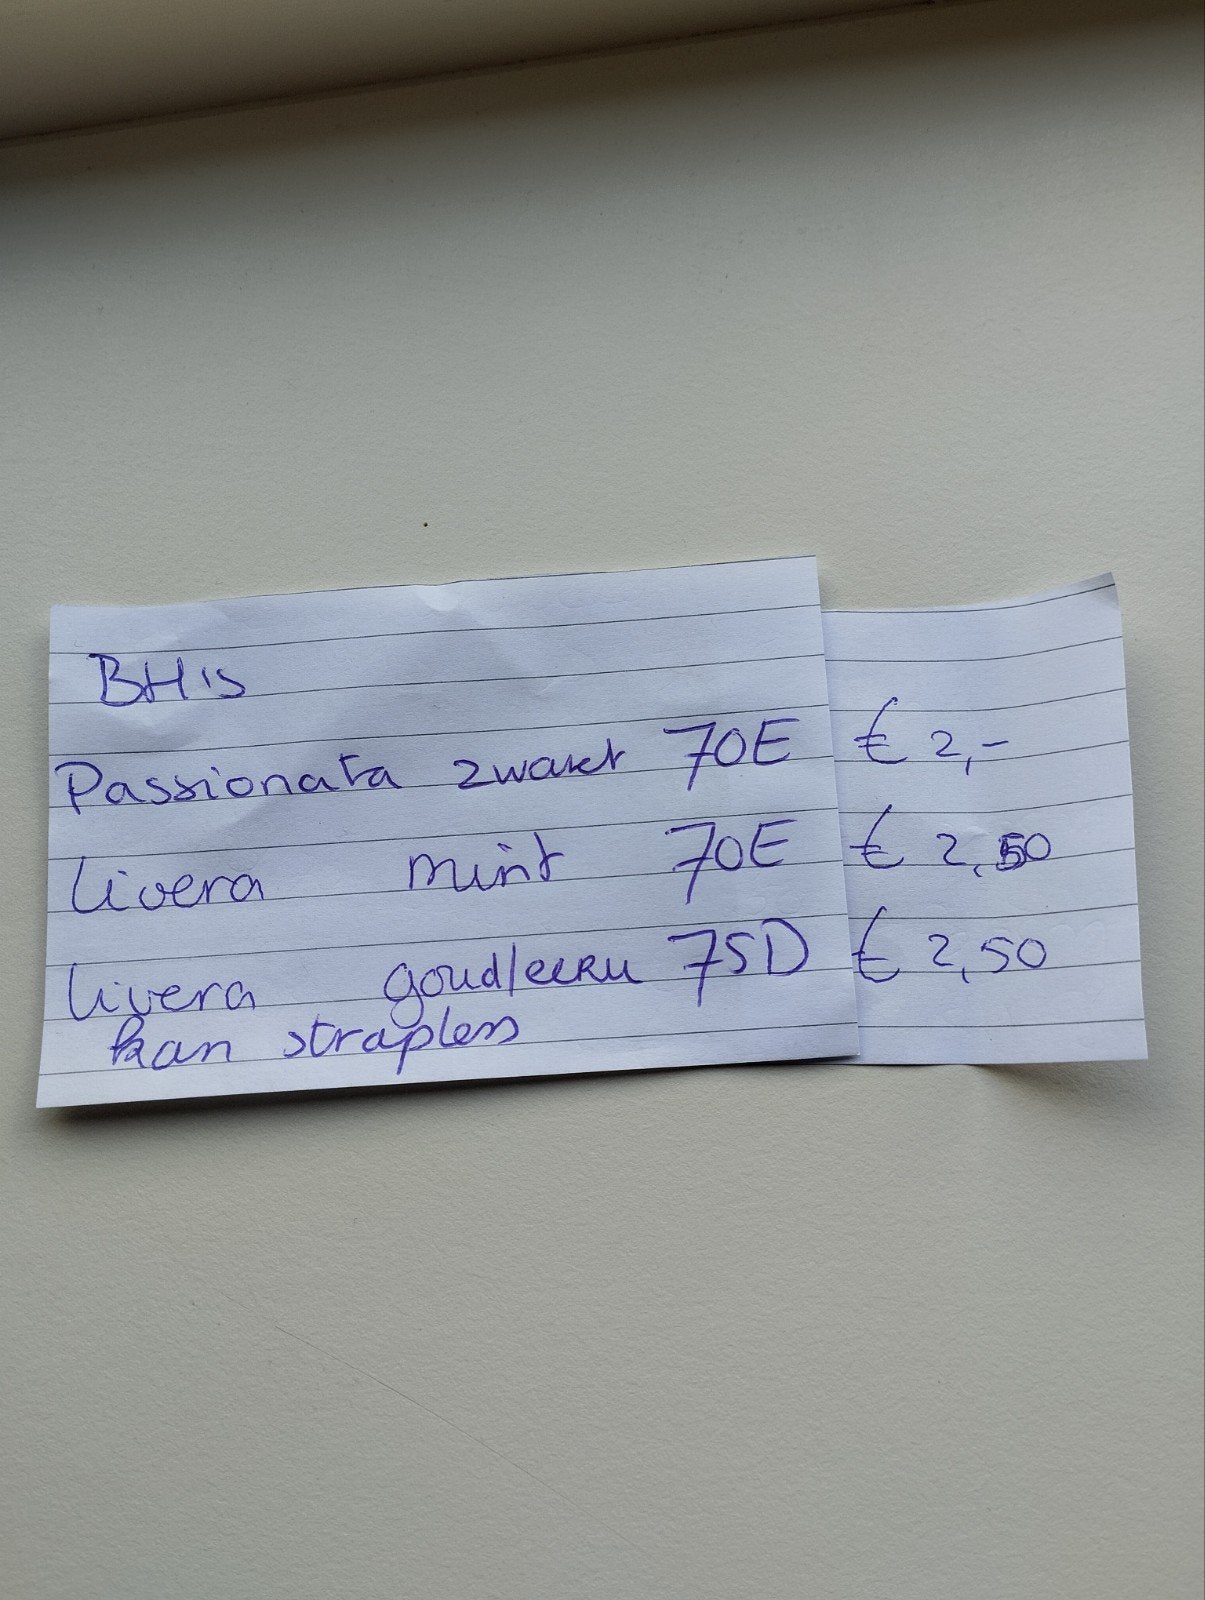 BH's
Passionata zwart 70E € 2,-
Livera mint 70E € 2,50
Livera goud/ecru 75D € 2,50
kan strapless